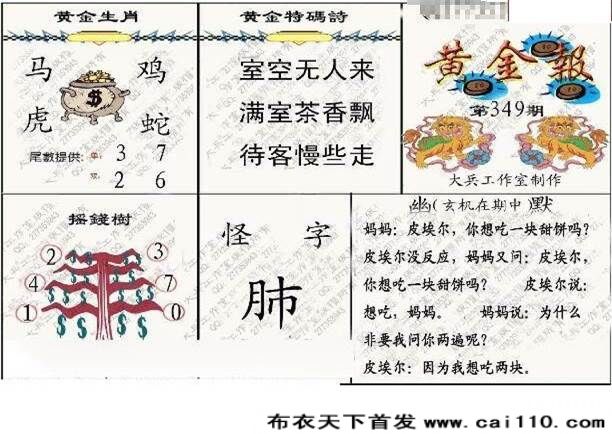 黄金生肖
马 鸡
虎 蛇
尾數提供: 单: 3 7
双: 2 6
黄金特碼詩
室空无人来
满室茶香飘
待客慢些走
黄金報
第349期
大兵工作室制作
摇錢樹
2 3
4 7
1 0
怪 字
肺
幽(玄机在期中)默
妈妈: 皮埃尔, 你想吃一块甜饼吗?
皮埃尔没反应, 妈妈又问: 皮埃尔,
你想吃一块甜饼吗? 皮埃尔说:
想吃, 妈妈。 妈妈说: 为什么
非要我问你两遍呢?
皮埃尔: 因为我想吃两块。
布衣天下首发 www.cai110.com